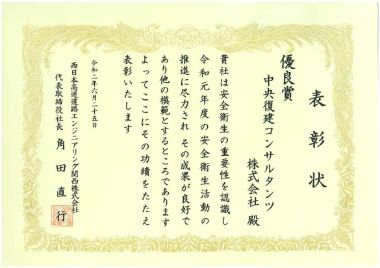 表彰状
優良賞
中央復建コンサルタンツ
株式会社 殿
貴社は安全衛生の重要性を認識し
令和元年度の安全衛生活動の
推進に尽力され その成果が良好で
あり他の模範とするところであります
よってここにその功績をたたえ
表彰いたします
令和二年六月二十五日
西日本高速道路エンジニアリング関西株式会社
代表取締役社長 角田直行